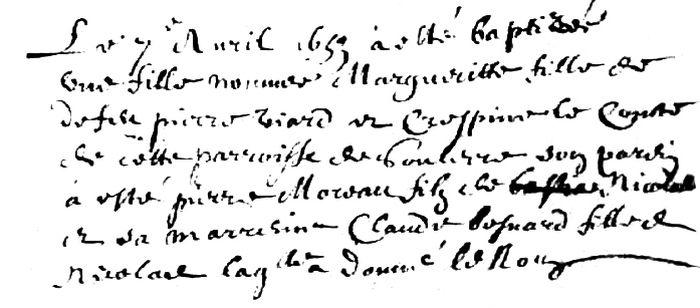 Le 7e Avril 1653 à esté baptisée
une fille nommée Margueritte fille de
defeu pierre viard et Crespine le Conte
de cette parroisse de son parein
à esté pierre Moreau filz de Nicolas
et sa marreine Claude besnard fille de
Nicolas laq a donné le Nom